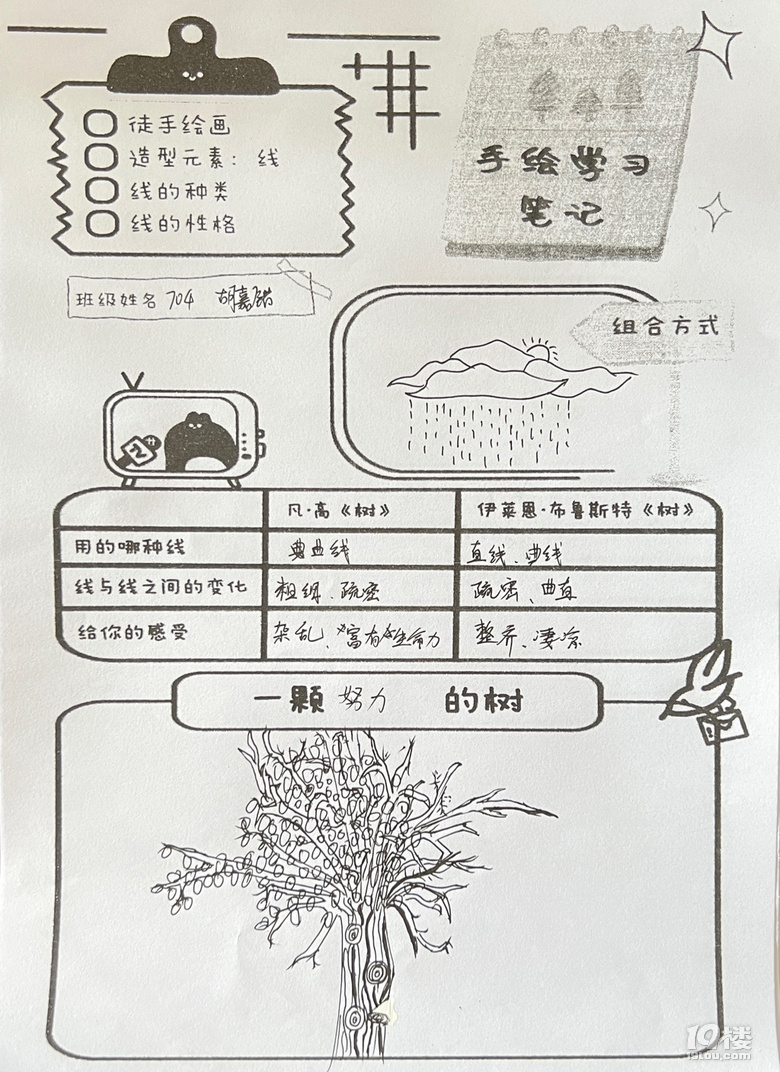 徒手绘画
造型元素：线
线的种类
线的性格
手绘学习
笔记
班级姓名 704 胡嘉
组合方式
凡·高《树》 伊莱恩·布鲁斯特《树》
用的哪种线 曲线 直线、曲线
线与线之间的变化 粗细、疏密 疏密、曲直
给你的感受 杂乱、富有生命力 整齐、凄凉
一颗 努力 的树
19楼
19lou.com